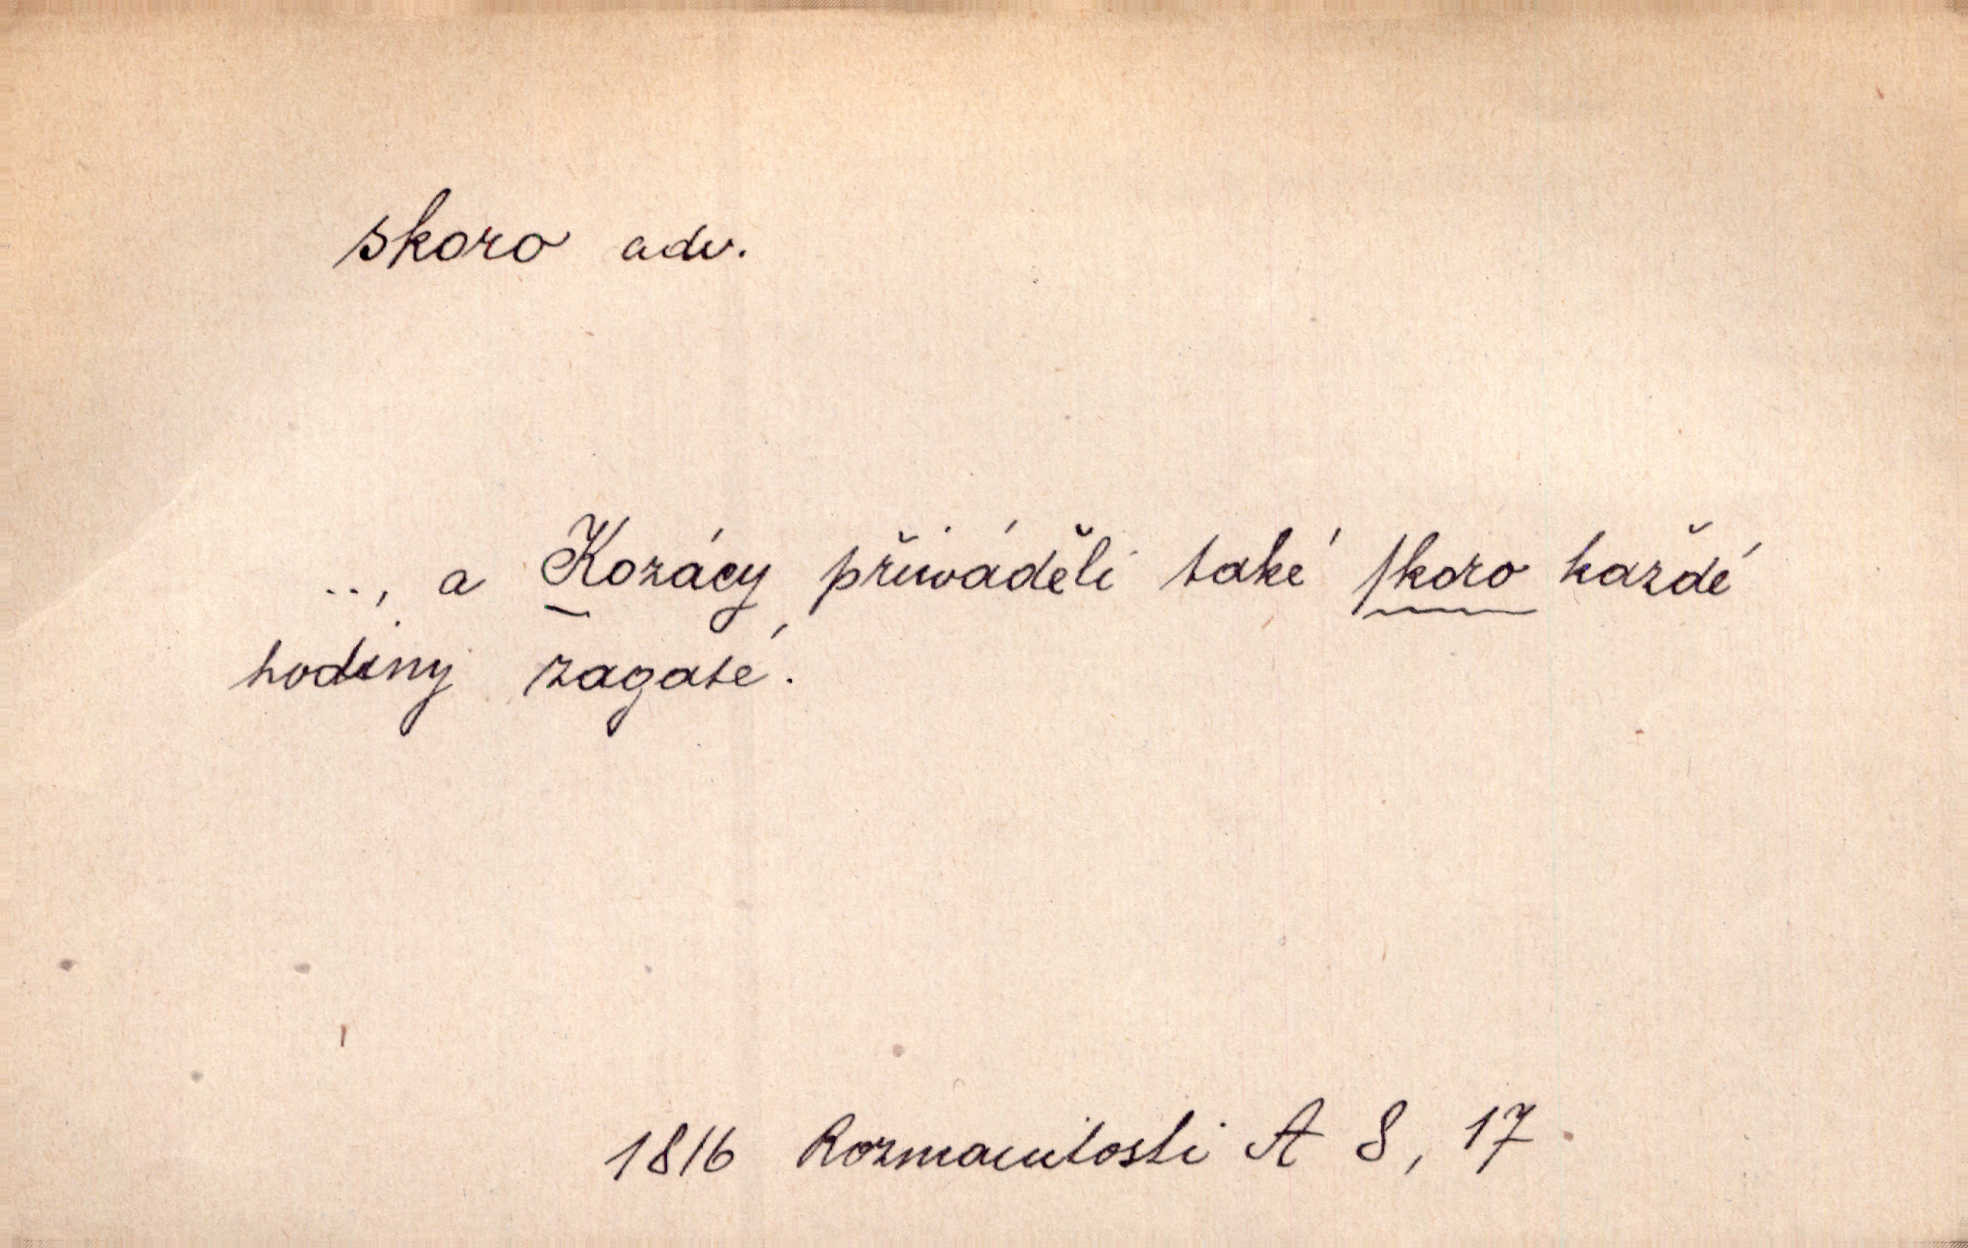 skoro adv.
.., a Kozácy přiwáděli také ſkoro každé
hodiny zagaté.
1816 Rozmanitosti A 8, 17